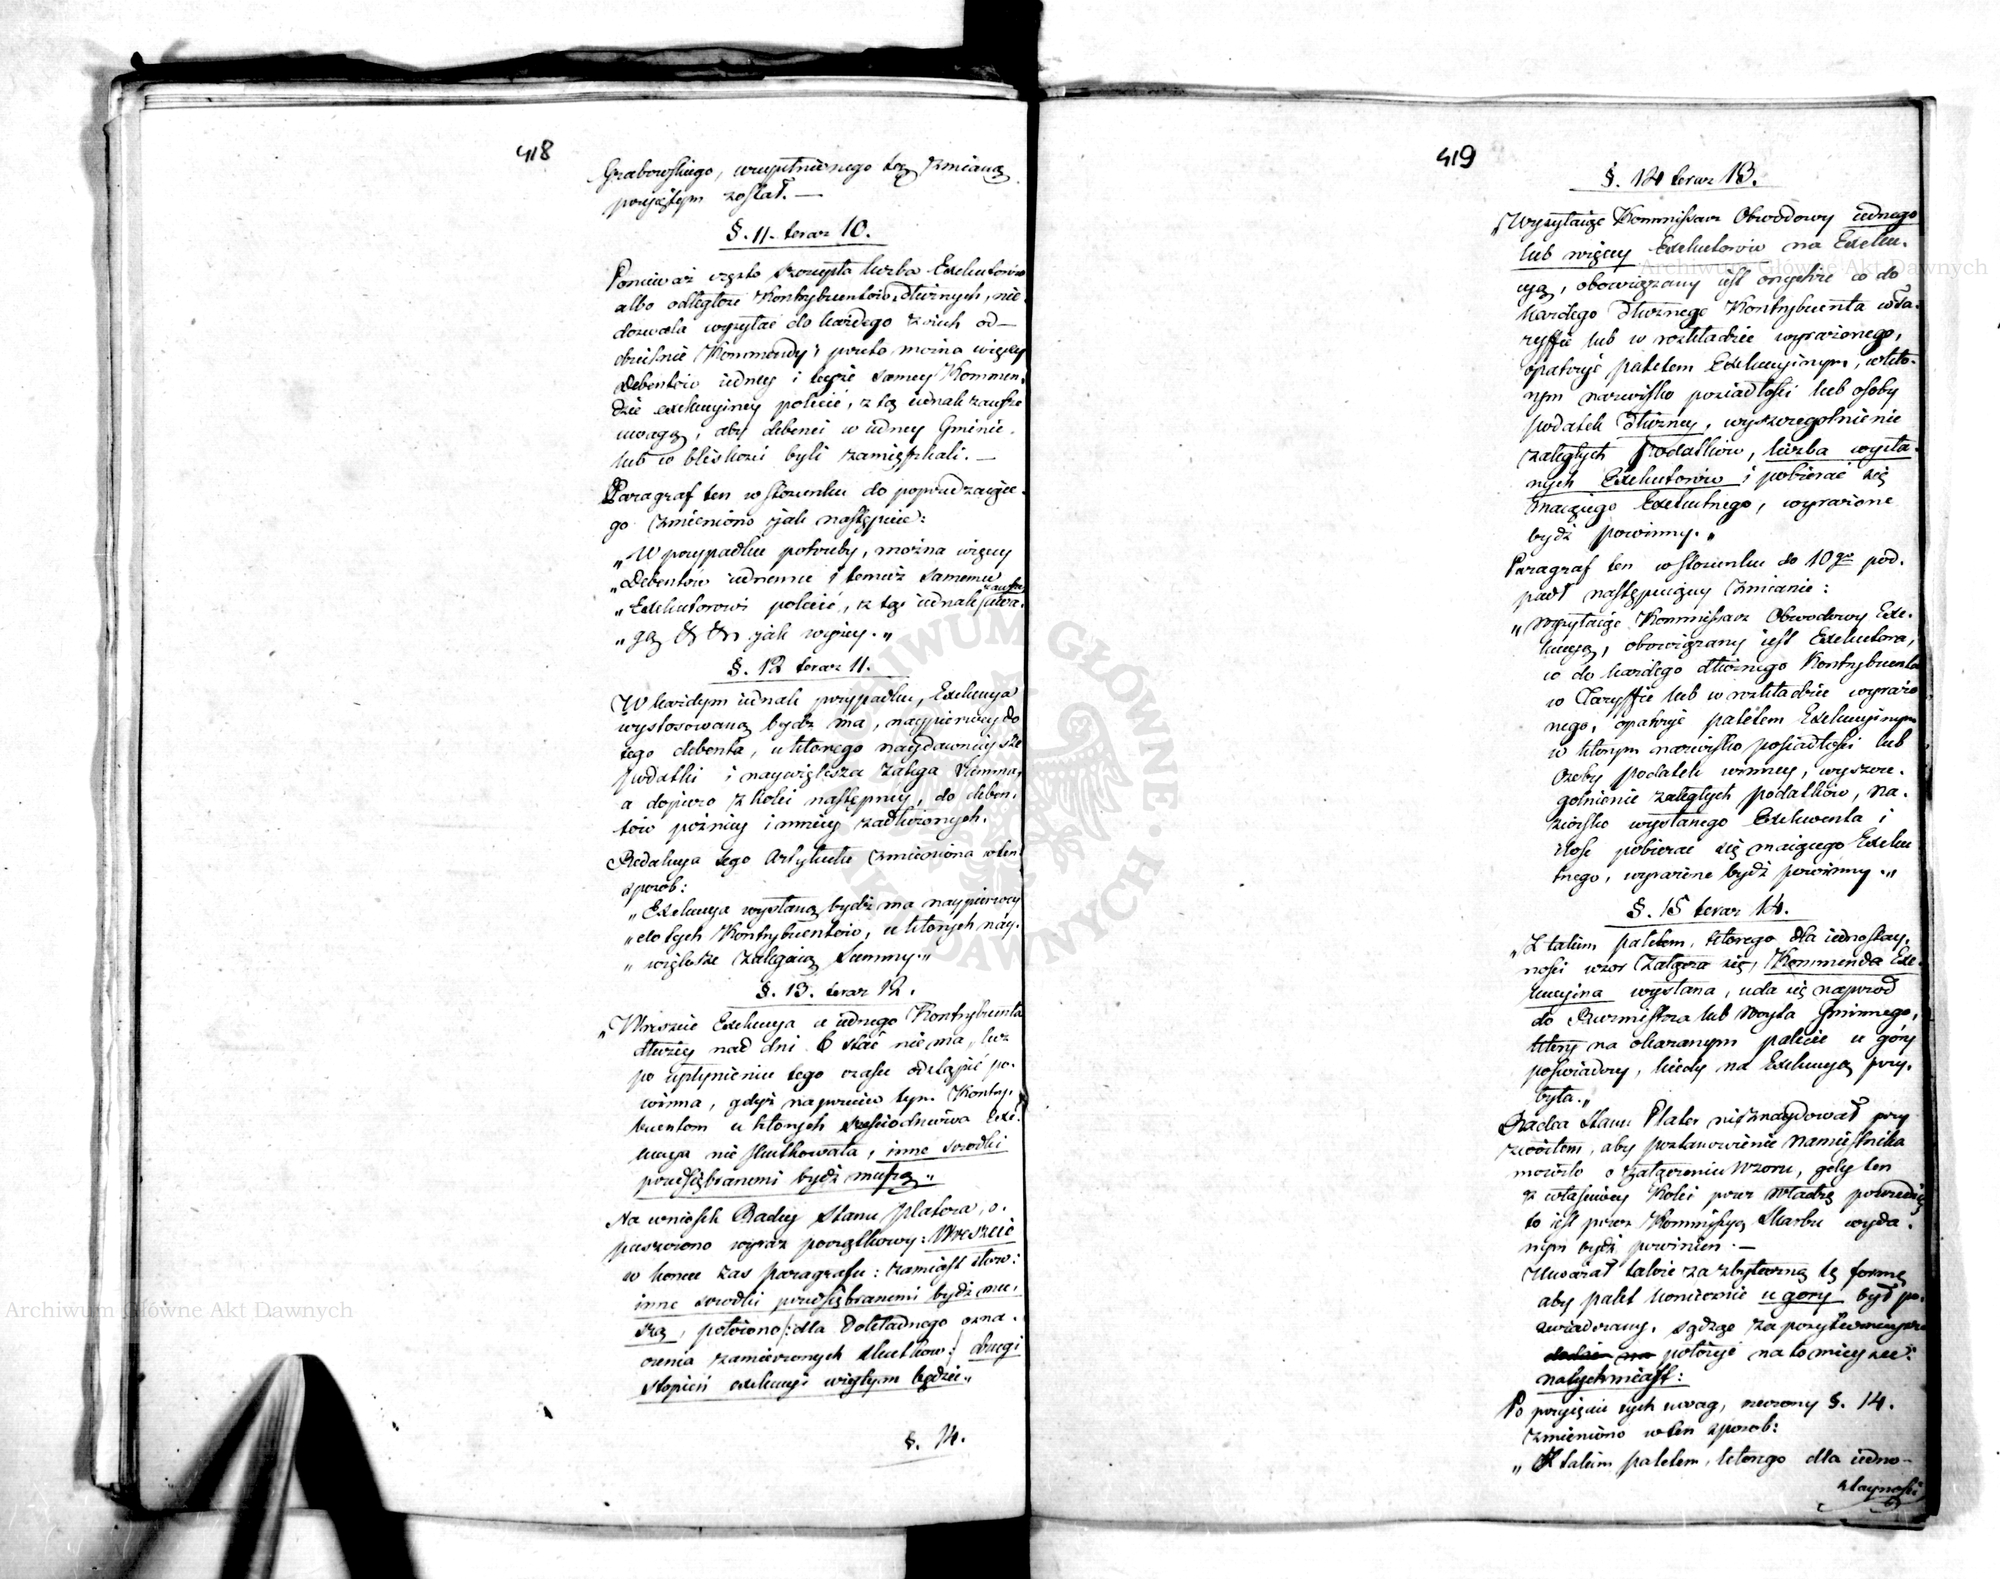 418
Grabowskiego, uzupełnionego tą zmianą
przyiętym został. —
§. 11. teraz 10.
Ponieważ często szczupła liczba Exekutorów
albo odległość Kontrybuentów dłużnych, nie
dozwala wysyłać do każdego z nich od-
dzielnie Kommendy; przeto można więcey
Debentów iedney i teyże samey Kommen-
dzie exekucyiney polecić, z tą iednak zawsze
uwagą, aby debenci w iedney Gminie
lub w bliskości byli zamieszkali. —
Paragraf ten w stosunku do poprzedzaiące-
go zmieniono jak następuie:
„W przypadku potrzeby, można więcey
„Debentów iednemu i temuż samemu
„Exekutorowi polecić, z tą iednak zawsze uwa-
„gą &c &c jak wyżey.„
§. 12 teraz 11.
W każdym iednak przypadku, Exekucya
wystosowaną bydź ma, nayperwey do
tego debenta, u którego naydawnieysze
podatki i naywiększa zalega summa,
a dopiero z kolei następney, do deben-
tów późniey i mniey zadłużonych.
Redakcya tego Artykułu zmieniona w ten
sposób:
„Exekucya wysłaną bydź ma naypierwey
„do tych Kontrybuentów, u których nay-
„większe zalegaią Summy.„
§. 13. teraz 12.
„Wreszcie Exekucya u iednego Kontrybuenta
dłużey nad dni 6 stać nie ma, lecz
po upłynieniu tego czasu odstąpić po-
winna, gdyż naprzeciw tym Kontry-
buentom u których sześciodniowa Exe-
kucya nie skutkowała, inne środki
przedsiębranemi bydź muszą„
Na wniosek Radcy Stanu Platera, o-
puszczono wyraz początkowy: Wreszcie
w końcu zaś paragrafu: zamiast słow:
inne srodki przedsiębranemi bydź mu-
szą, położono /: dla dokładnego ozna-
czenia zamierzonych skutków :/ drugi
stopień exekucyi użytym będzie„
§. 14.
419
§. 14 teraz 13.
„Wysyłaiąc Kommissarz Obwodowy iednego
lub więcey Exekutorów na Exeku-
cyą, obowiązany iest onychże co do
każdego dłużnego Kontrybuenta w ta-
ryffie lub w rozkładzie wyrażonego,
opatrzyć paletem Exekucyinym, w któ-
rym nazwisko posiadłości lub osoby
podatek dłużney, wyszczególnienie
zaległych podatków, liczba wysła-
nych Exekutorów i pobierać się
maiącego Exekutnego, wyrażone
bydź powinny.„
Paragraf ten w stosunku do 10go pod-
padł następuiącey zmianie:
„Wysyłaiąc Kommissarz Obwodowy Exe-
kucyą, obowiązany iest Exekutora,
co do każdego dłużnego Kontrybuenta
w Taryffie lub w rozkładzie wyrażo
nego, opatrzyć paletem Exekucyinym
w którym nazwisko posiadłości lub
Osoby podatek winney, wyszcze-
gólnienie zaległych podatków, Na-
zwisko wysłanego Exekuenta i
ilość pobierać się maiącego Exeku
tnego, wyrażone bydź powinny.„
§. 15 teraz 14.
„Z takim paletem, którego dla iednostay-
ności wzór załącza się, Kommenda Exe-
kucyina wysłana, uda się naprzód
do Burmistrza lub Woyta Gminnego,
który na okazanym palecie u góry
poświadczy, kiedy na Exekucyą przy-
była.„
Radca Stanu Plater nieznaydował przy-
zwoitem, aby postanowienie Namiestnika
mówiło o załączeniu wzoru, gdy ten
z właściwey kolei przez Władzę powiedzią
to iest przez Kommissyą Skarbu wyda-
nym bydź powinien. —
Uważał także za zbyteczną tę formę
aby palet koniecznie u gory był po-
swiadczony, sądząc za pożyteczniey
położyć na to mieysce:
natychmiast:
Po przyięciu tych uwag, rzeczony §. 14.
zmieniono w ten sposób:
„Z takim paletem, którego dla iedno-
stayności
Archiwum Główne Akt Dawnych
Archiwum Główne Akt Dawnych
ARCHIWUM GŁÓWNE AKT DAWNYCH